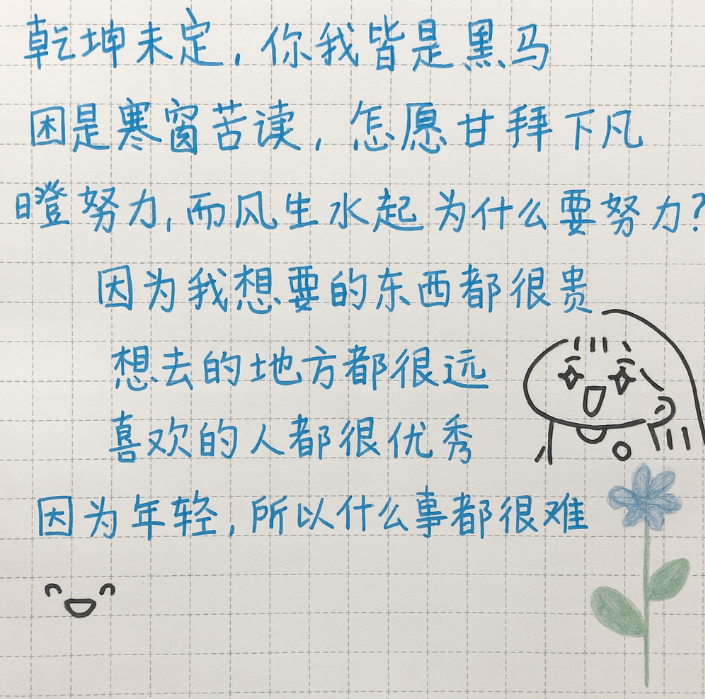 乾坤未定，你我皆是黑马
困是寒窗苦读，怎愿甘拜下凡
瞪努力，而风生水起为什么要努力？
因为我想要的东西都很贵
想去的地方都很远
喜欢的人都很优秀
因为年轻，所以什么事都很难